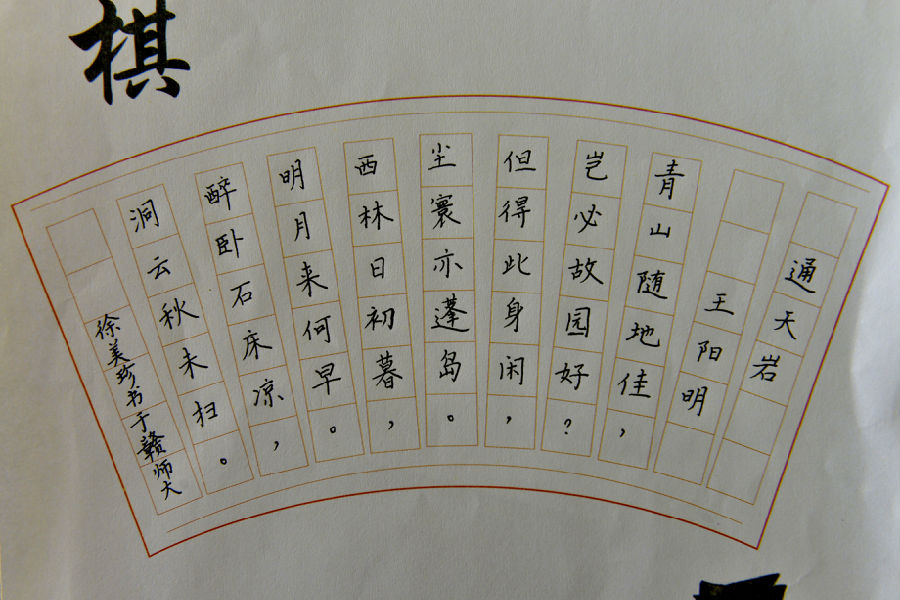 棋
通天岩
王阳明
青山随地佳，
岂必故园好？
但得此身闲，
尘寰亦蓬岛。
西林日初暮，
明月来何早。
醉卧石床凉，
洞云秋未扫。
徐美珍书于赣师大